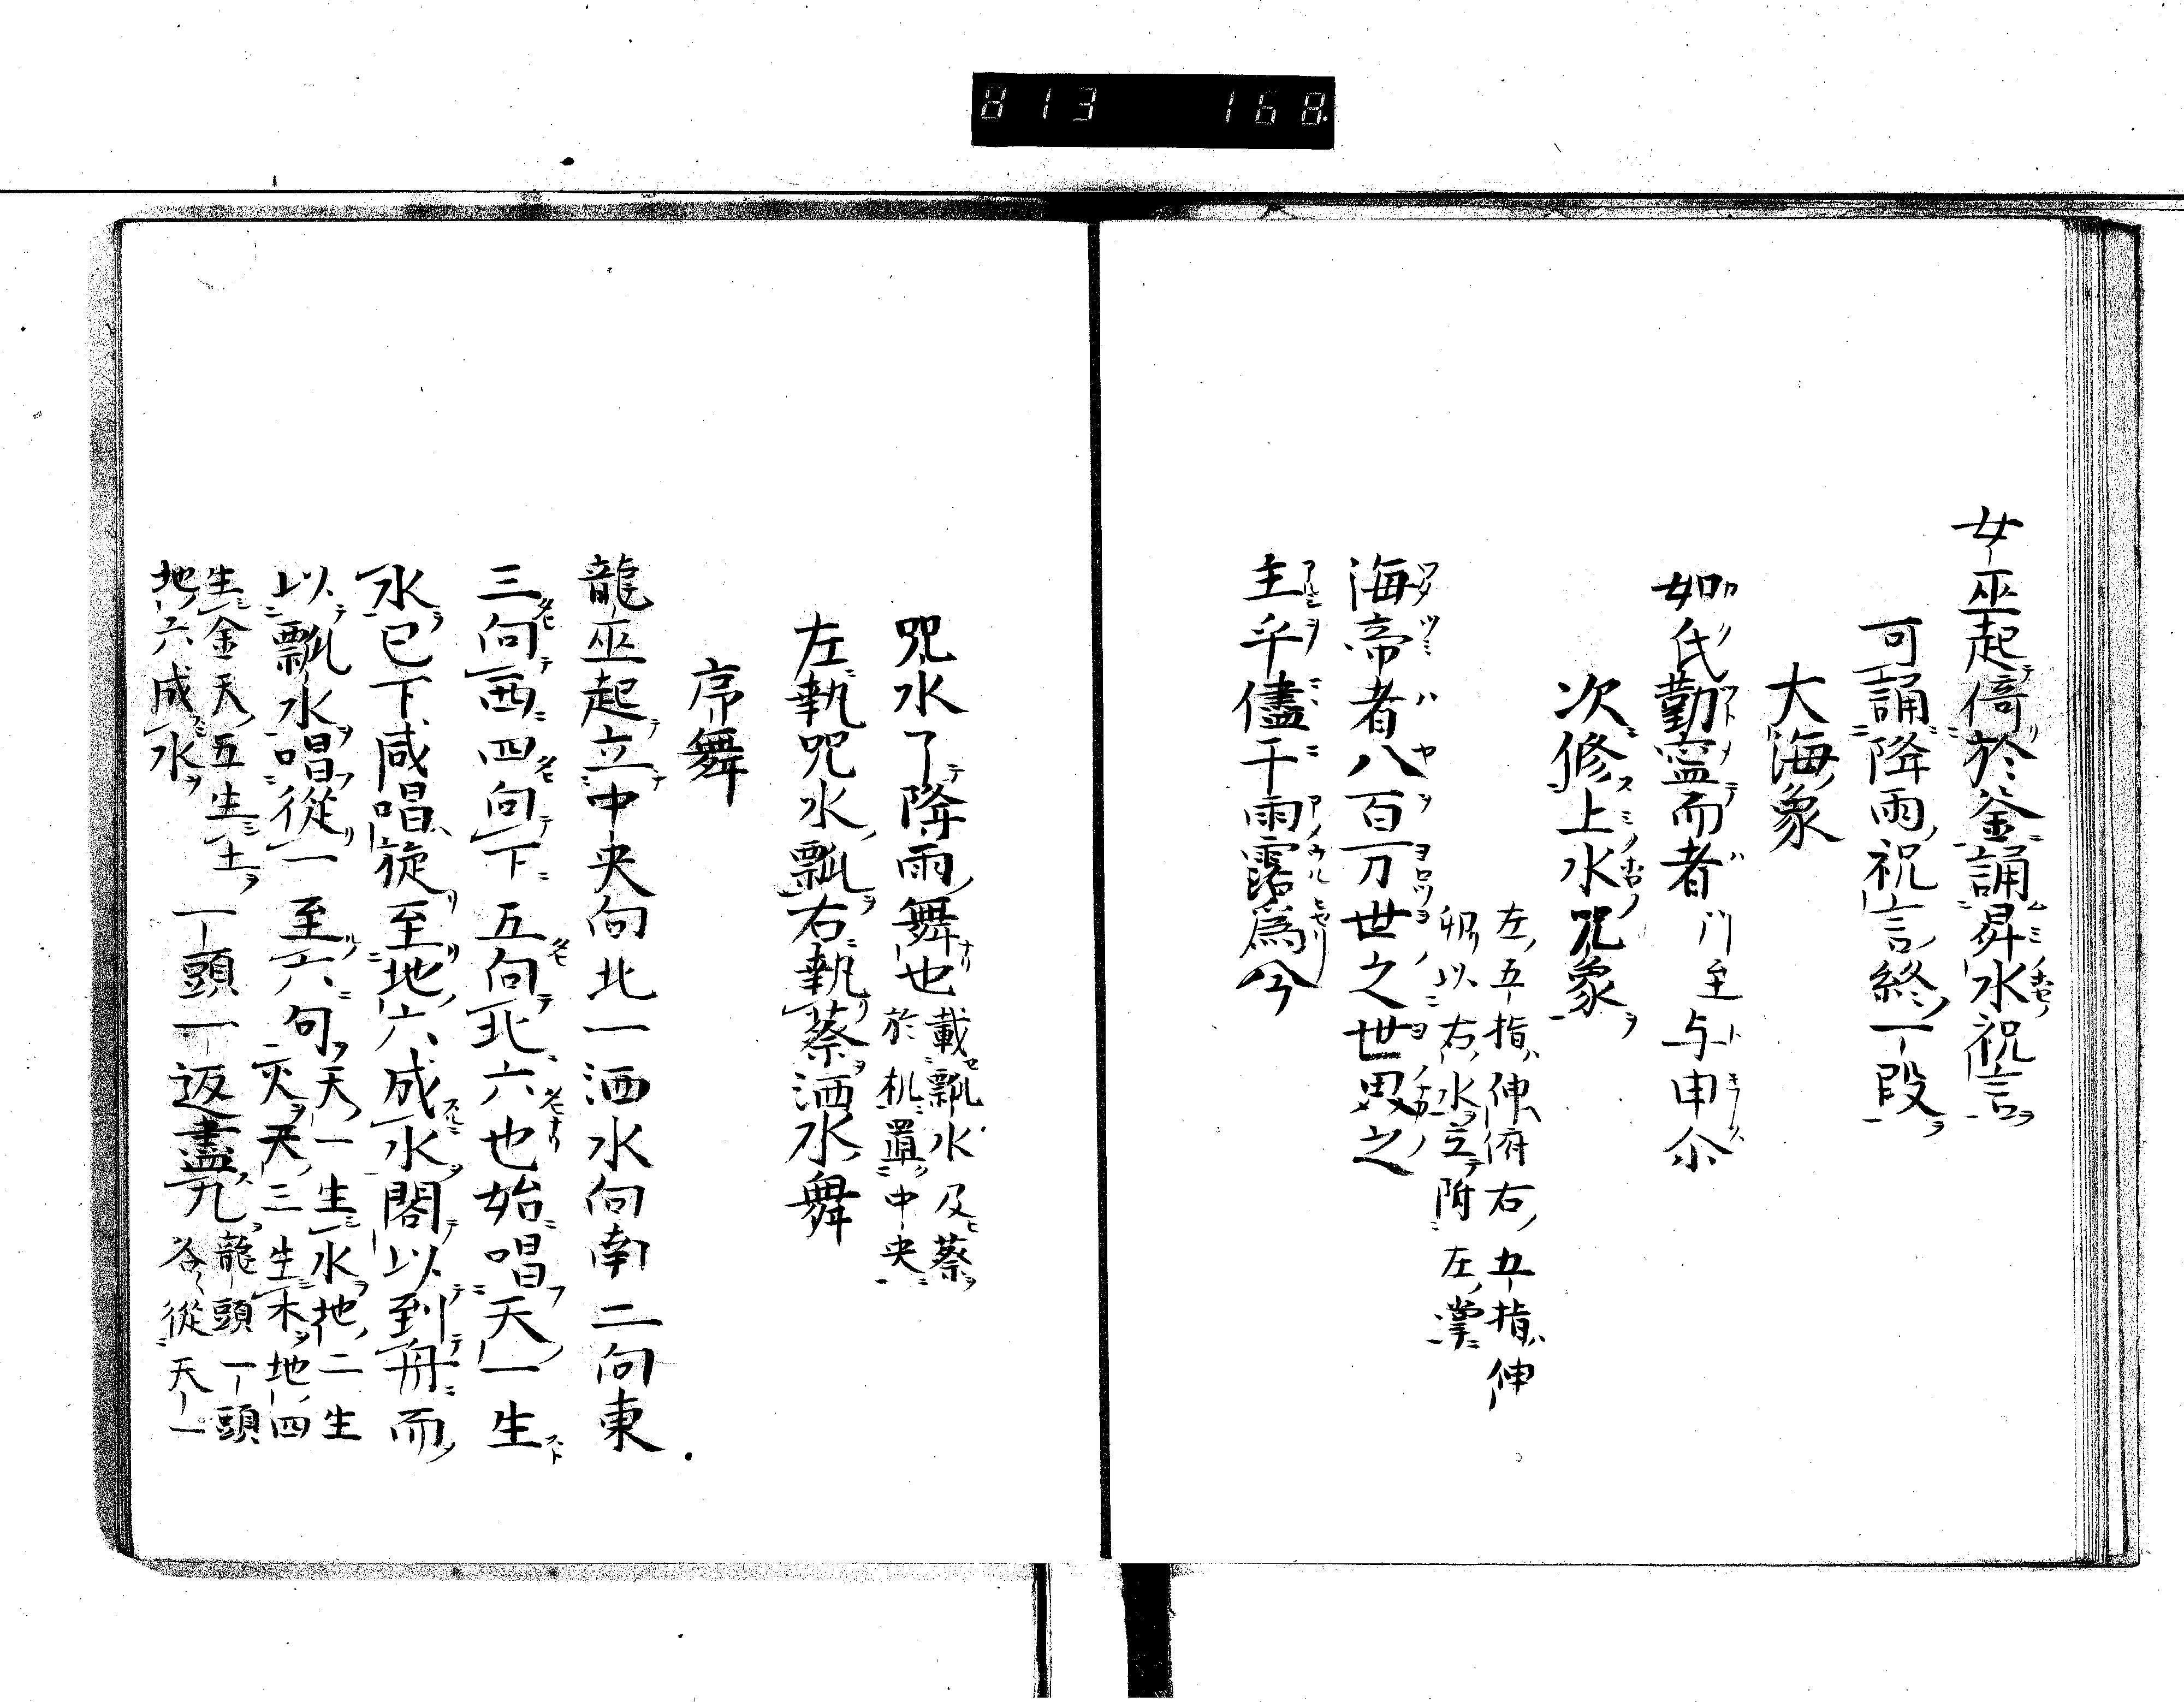 813 168
女巫起倚於釜誦昇水祝言
可誦降雨祝言終一段
大海象
如氏勤寍而者 门至与申尒
次修上水咒象
左五指伸俯右五指伸
仰以右水立附左掌
海帝者八百万世之世男之
主乎儘干雨露為今
咒水了降雨舞也 載瓢水及蔡
於机置中央
左執咒水瓢右執蔡洒水舞
序舞
龍巫起立中央向北一洒水向南二向東
三向西四向下五向北六也始唱天一生
水已下咸唱旋至地六成水閤以到舟而
以瓢水唱從一至六句 天一生水地二生
火天三生木地四
生金天五生土
地六成水
一頭一返盡九 龍頭一頭
各從天一